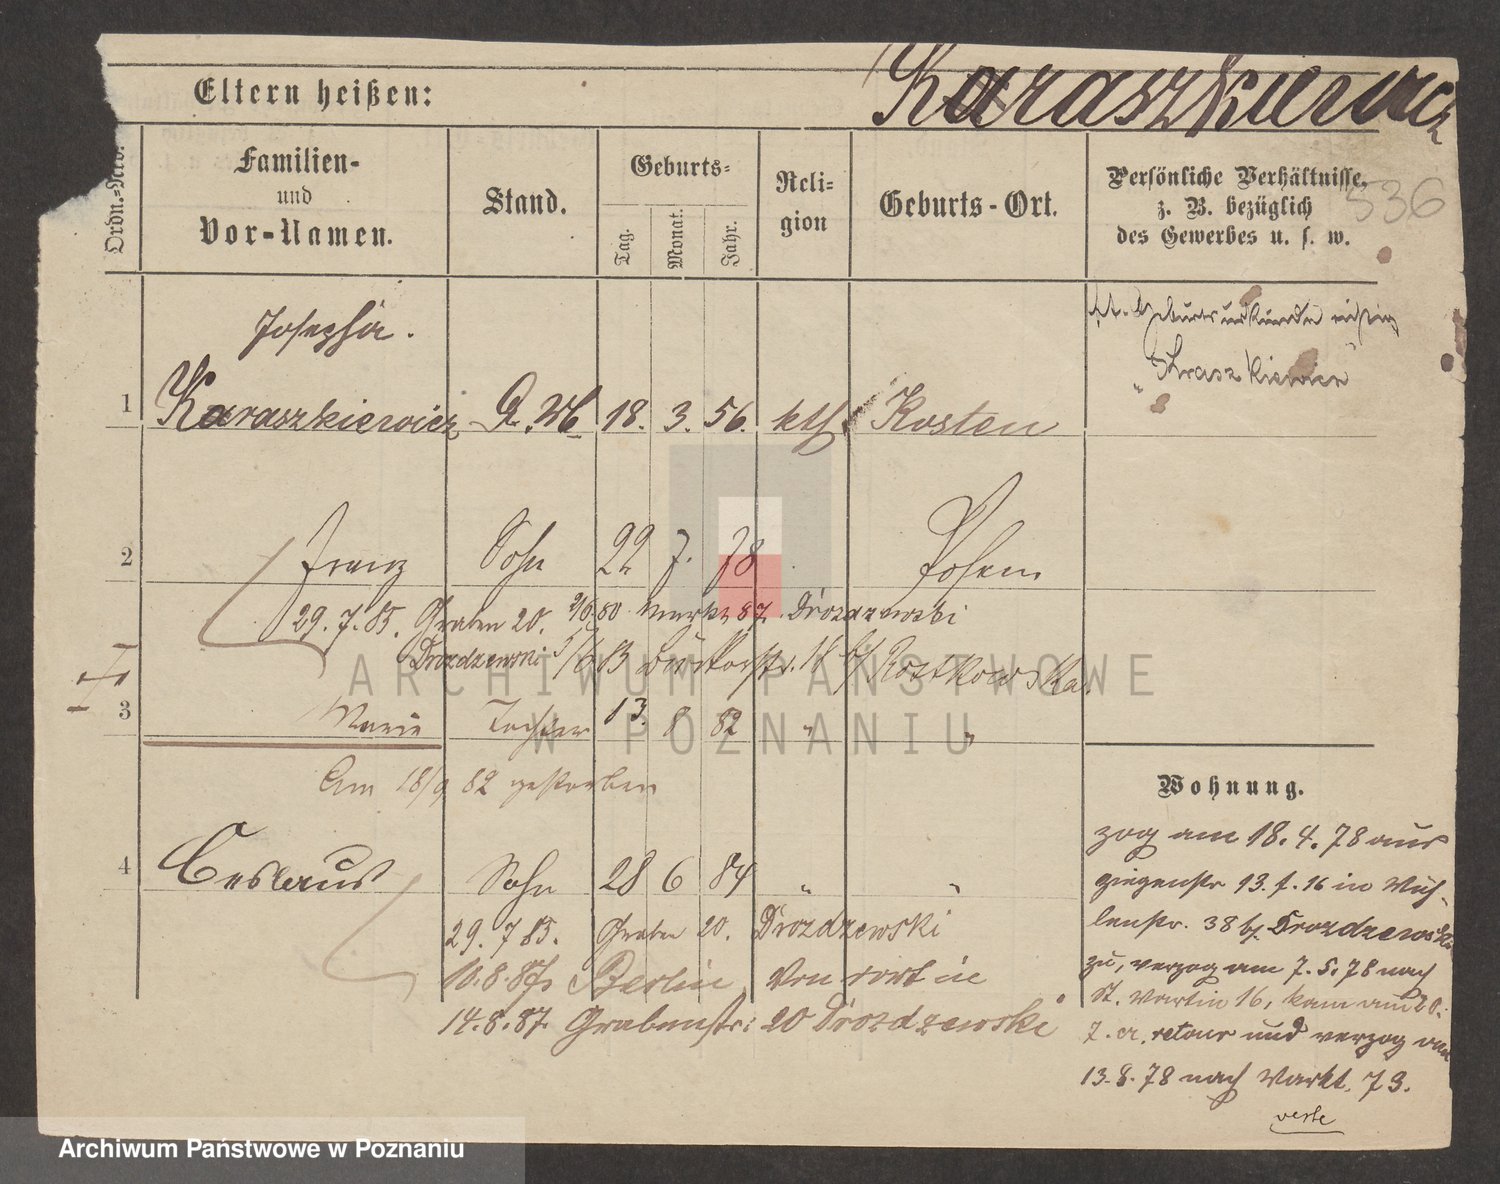 Eltern heißen:
Karaszkiewicz
Ordn.=Nro.
Familien-
und
Vor-Namen.
Stand.
Geburts=
Tag.
Monat.
Jahr.
Reli=
gion
Geburts-Ort.
Persönliche Verhältnisse,
z. B. bezüglich
des Gewerbes u. s. w.
536
Josepha.
lt. Geburtsurkunde richtig
"Kraszkiewicz"
1 Karaszkiewicz 18. 3. 56. kth. Kosten
2 Franz Sohn 22 7. 78 Posen
29. 7. 85. Graben 20. 80 Markt 87 Drozdzewski
Drozdzewski 83 18 b/ Rostkowska
3 Marie Tochter 13. 8 82 " "
Am 18/9 82 gestorben
Wohnung.
4 Ceslaus Sohn 28 6 84 " "
29. 7 85. Graben 20. Drozdzewski
10.8.87 Berlin Von dort in
14.8.87. Grabenstr: 20 Drozdzewski
zog am 18.4.78 aus
13. 1. 16 in Müh-
lenstr. 38 b/ Drozdzewski
zu, verzog am 7.5.78 nach
St. Martin 16, kam am 20.
7. cr. retour und verzog am
13.8.78 nach Markt. 73.
ARCHIWUM PAŃSTWOWE
W POZNANIU
Archiwum Państwowe w Poznaniu